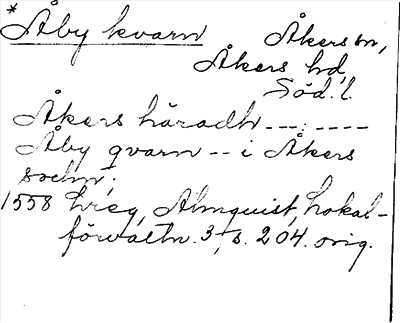 * Åby kvarn Åkers sn,
Åkers hd,
Söd. l.
Åkers häradh --- ; ----
Åby qvarn -- i Åkers
sochn;
1558 hreg, Almquist, Lokal-
förvaltn. 3, s. 204. orig.